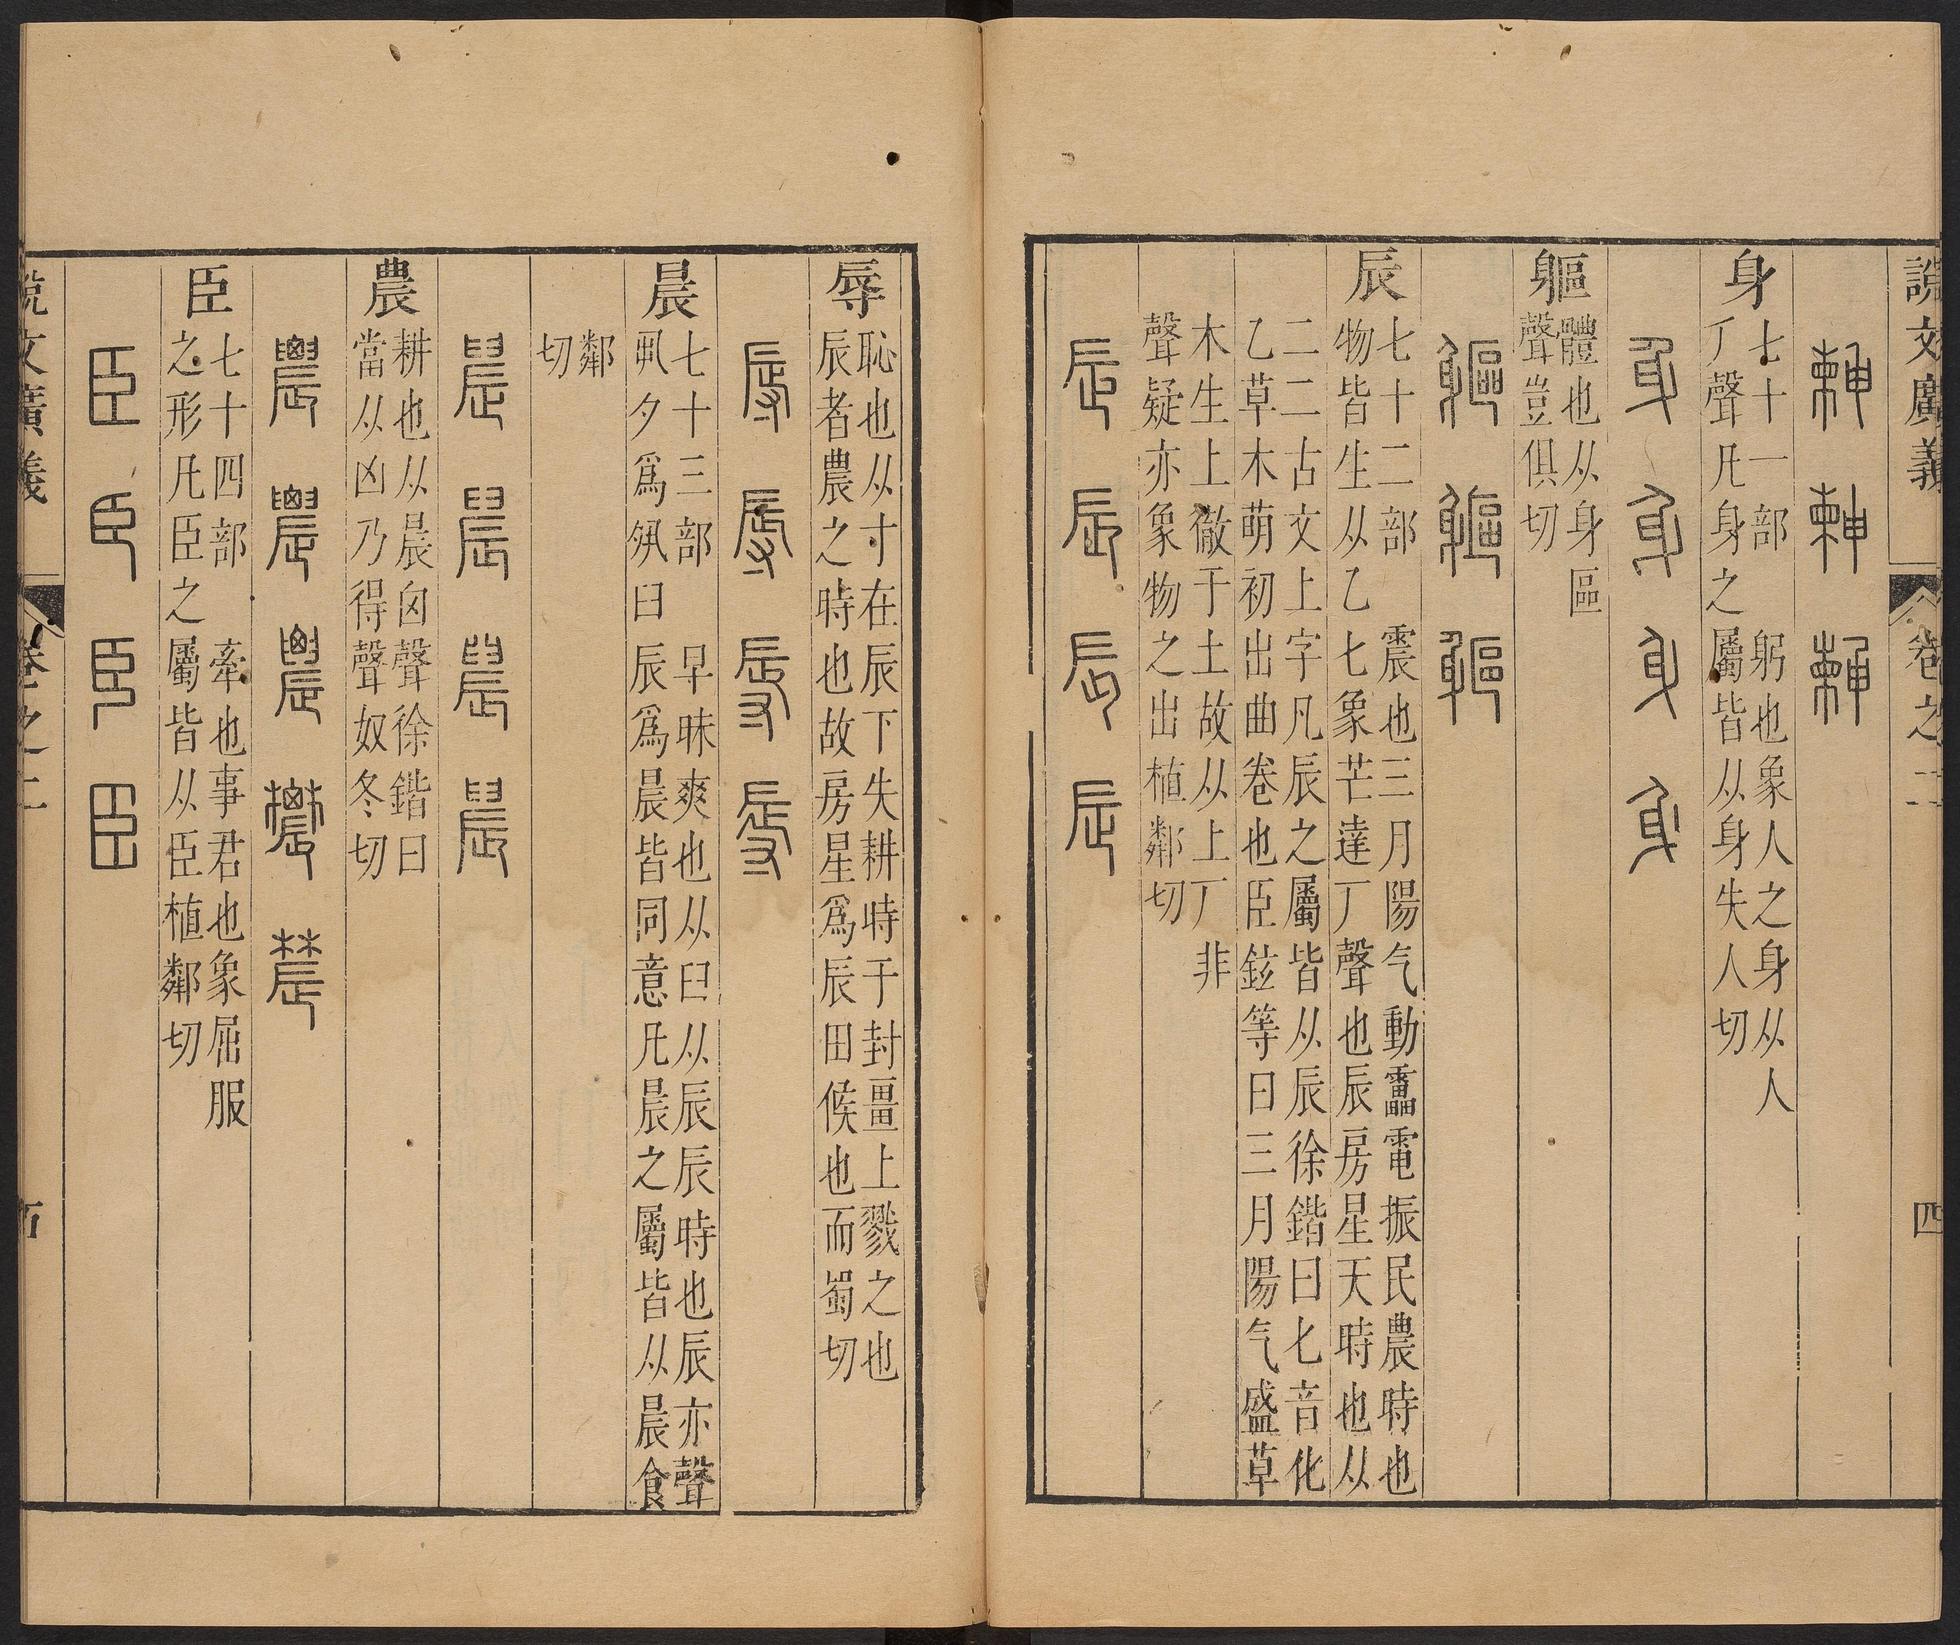 說文廣義
卷之二
四
身
七十一部 躬也象人之身从人
厂聲凡身之屬皆从身失人切
軀
體也从身區
聲豈俱切
辰
七十二部 震也三月陽气動靁電振民農時也
物皆生从乙七象芒達厂聲也辰房星天時也从
二二古文上字凡辰之屬皆从辰徐鍇曰匕音化
乙草木萌初出曲卷也臣鉉等曰三月陽气盛草
木生上徹于土故从上厂非
聲疑亦象物之出植鄰切
辱
恥也从寸在辰下失耕時于封畺上戮之也
辰者農之時也故房星為辰田候也而蜀切
晨
七十三部 早昧爽也从臼从辰辰時也辰亦聲
夙夕為𡖊臼辰為晨皆同意凡晨之屬皆从晨食
鄰
切
農
耕也从晨囟聲徐鍇曰
當从凶乃得聲奴冬切
臣
七十四部 牽也事君也象屈服
之形凡臣之屬皆从臣植鄰切
說文廣義
卷之二